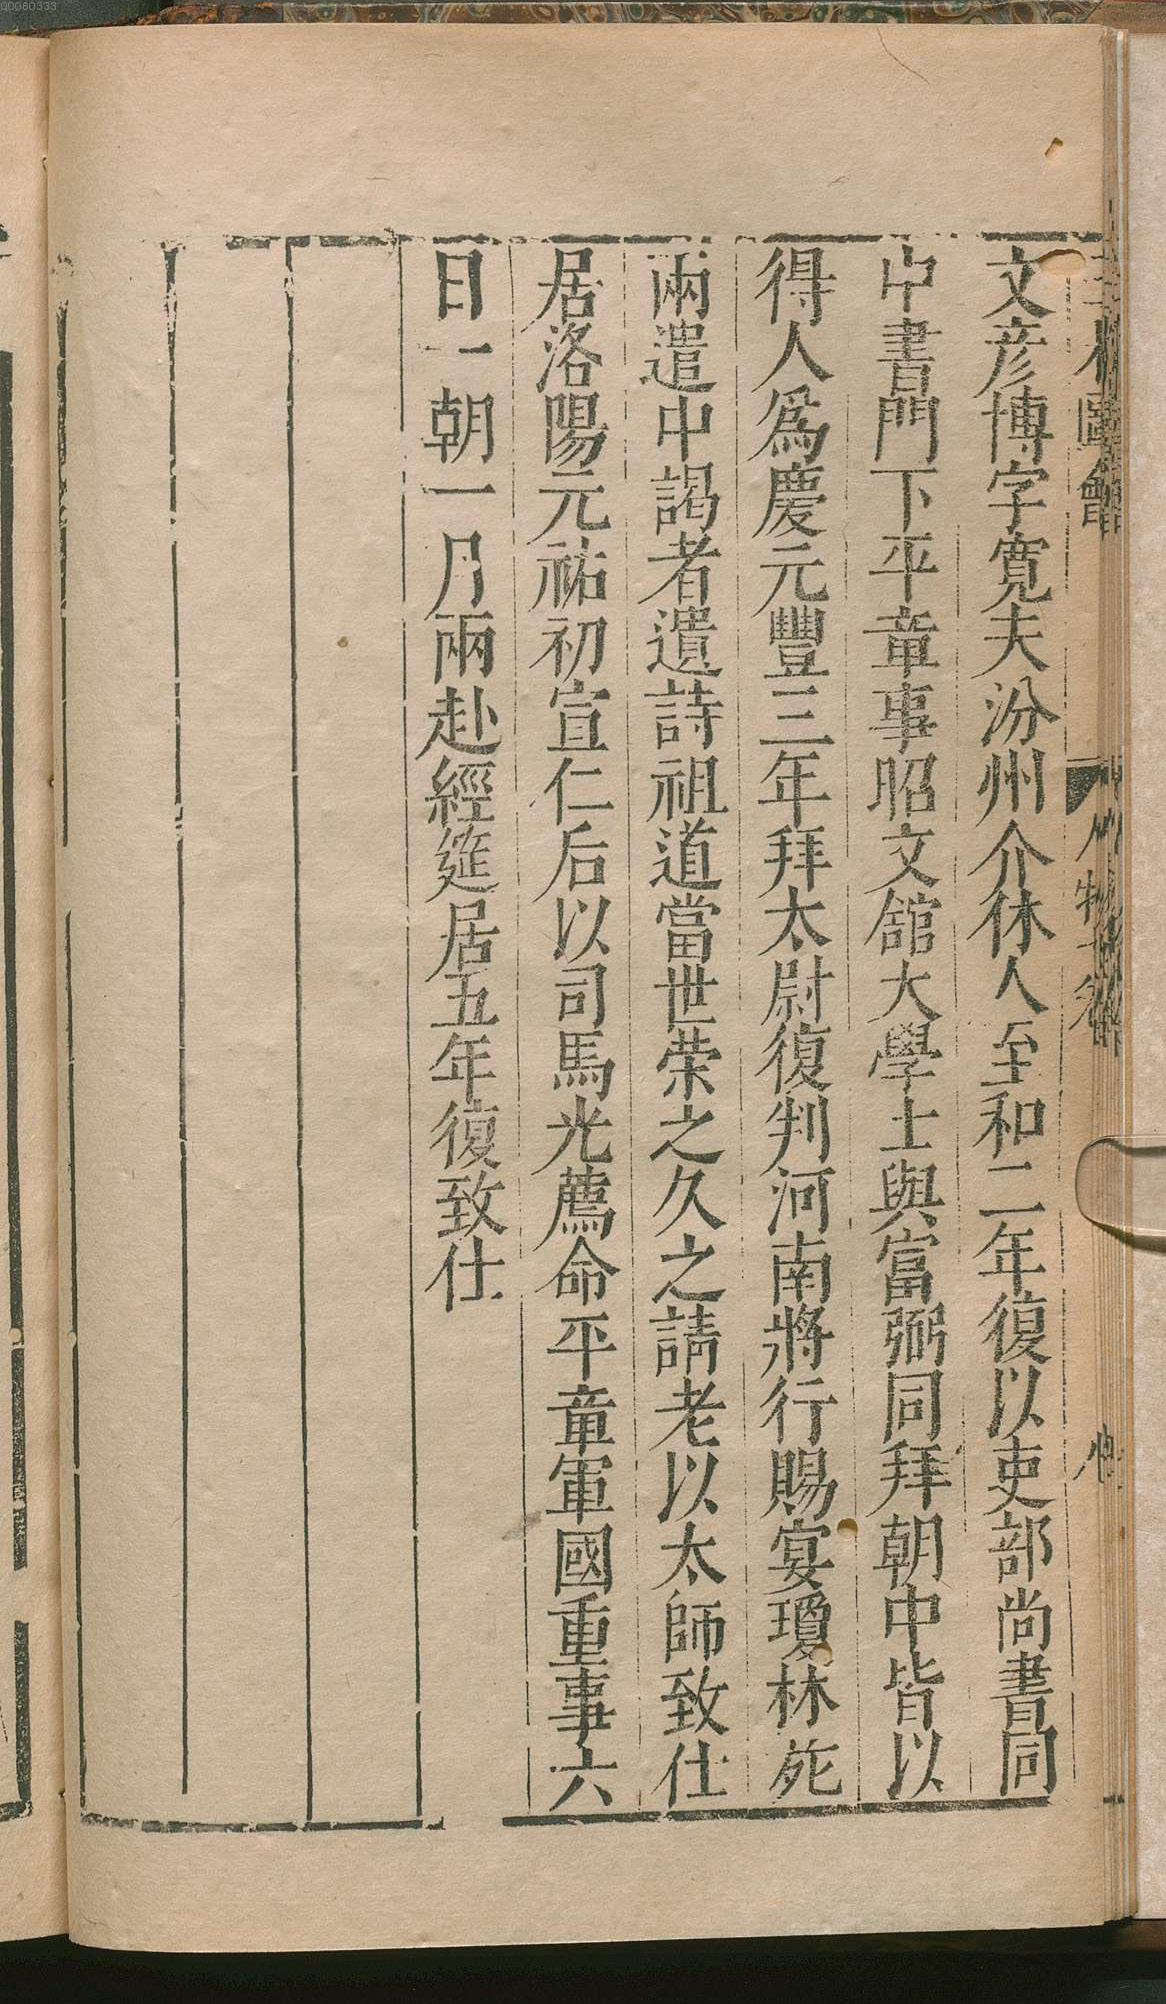 三才圖會
人物六卷
文彦博字寛夫汾州介休人至和二年復以吏部尚書同
中書門下平章事昭文舘大學士與富弼同拜朝中皆以
得人爲慶元豐三年拜太尉復判河南將行賜宴瓊林苑
兩遣中謁者遺詩祖道當世荣之久之請老以太師致仕
居洛陽元祐初宣仁后以司馬光薦命平章軍國重事六
日一朝一月兩赴經筵居五年復致仕
00060333